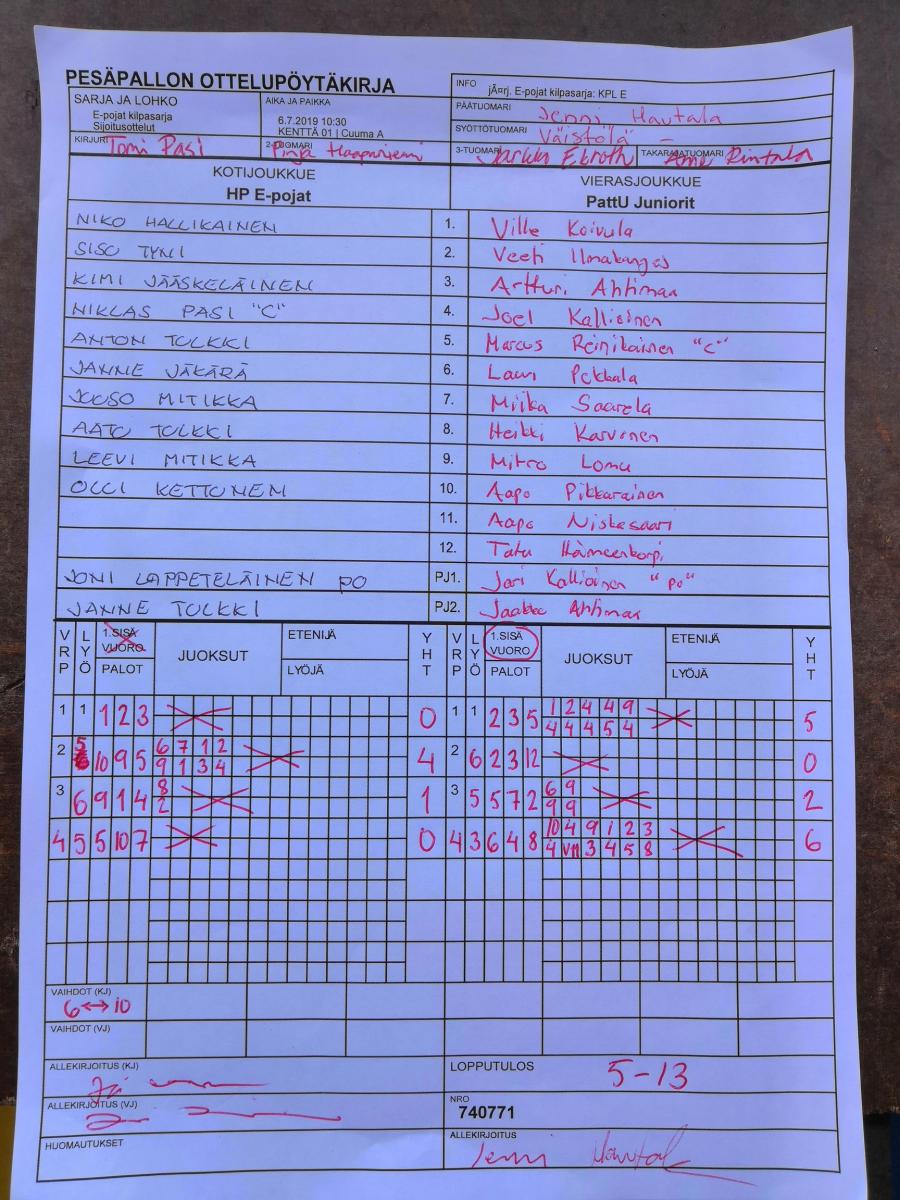 PESÄPALLON OTTELUPÖYTÄKIRJA
SARJA JA LOHKO
E-pojat kilpasarja
Sijoitusottelut
AIKA JA PAIKKA
6.7.2019 10:30
KENTTÄ 01 | Cuuma A
INFO
jÃ¤rj. E-pojat kilpasarja: KPL E
PÄÄTUOMARI Jenni Hautala
SYÖTTÖTUOMARI Väistölä –
KIRJURI Tomi Pasi
2-TUOMARI Pinja Haapaniemi
3-TUOMARI Jarkko Ekroth
TAKARAJATUOMARI Rintala
KOTIJOUKKUE
HP E-pojat
VIERASJOUKKUE
PattU Juniorit
NIKO HALLIKAINEN 1. Ville Koivula
SISO TYNI 2. Veeti Ilmakangas
KIMI JÄÄSKELÄINEN 3. Artturi Ahtimaa
NIKLAS PASI "C" 4. Joel Kallioinen
ANTON TULKKI 5. Marcus Reinikainen "C"
JANNE JÄKÄRÄ 6. Lauri Pekkala
JUUSO MITIKKA 7. Miika Saarela
AATU TULKKI 8. Heikki Karvonen
LEEVI MITIKKA 9. Mitro Lomu
OLLI KETTUNEN 10. Aapo Pikkarainen
11. Aapo Niskasaari
12. Tatu Hämeenkorpi
JONI LAPPETELÄINEN PO PJ1. Jari Kallioinen "po"
JANNE TULKKI PJ2. Jaakko Ahtimaa
VRP LYÖ 1.SISÄ VUORO PALOT JUOKSUT ETENIJÄ LYÖJÄ YHT VRP LYÖ 1.SISÄ VUORO PALOT JUOKSUT ETENIJÄ LYÖJÄ YHT
1 1 1 2 3 0 1 1 2 3 5 1 2 4 4 9 5
4 4 4 5 4
2 5 10 9 5 6 7 1 2 4 2 6 2 3 12 0
9 1 3 4
3 6 9 1 4 8 1 3 5 5 7 2 6 9 2
2 9 9
4 5 5 10 7 0 4 3 6 4 8 10 4 9 1 2 3 6
4 VII 3 4 5 8
VAIHDOT (KJ)
6 ↔ 10
VAIHDOT (VJ)
ALLEKIRJOITUS (KJ)
LOPPUTULOS 5-13
ALLEKIRJOITUS (VJ)
NRO
740771
HUOMAUTUKSET
ALLEKIRJOITUS
Jenni Hautala